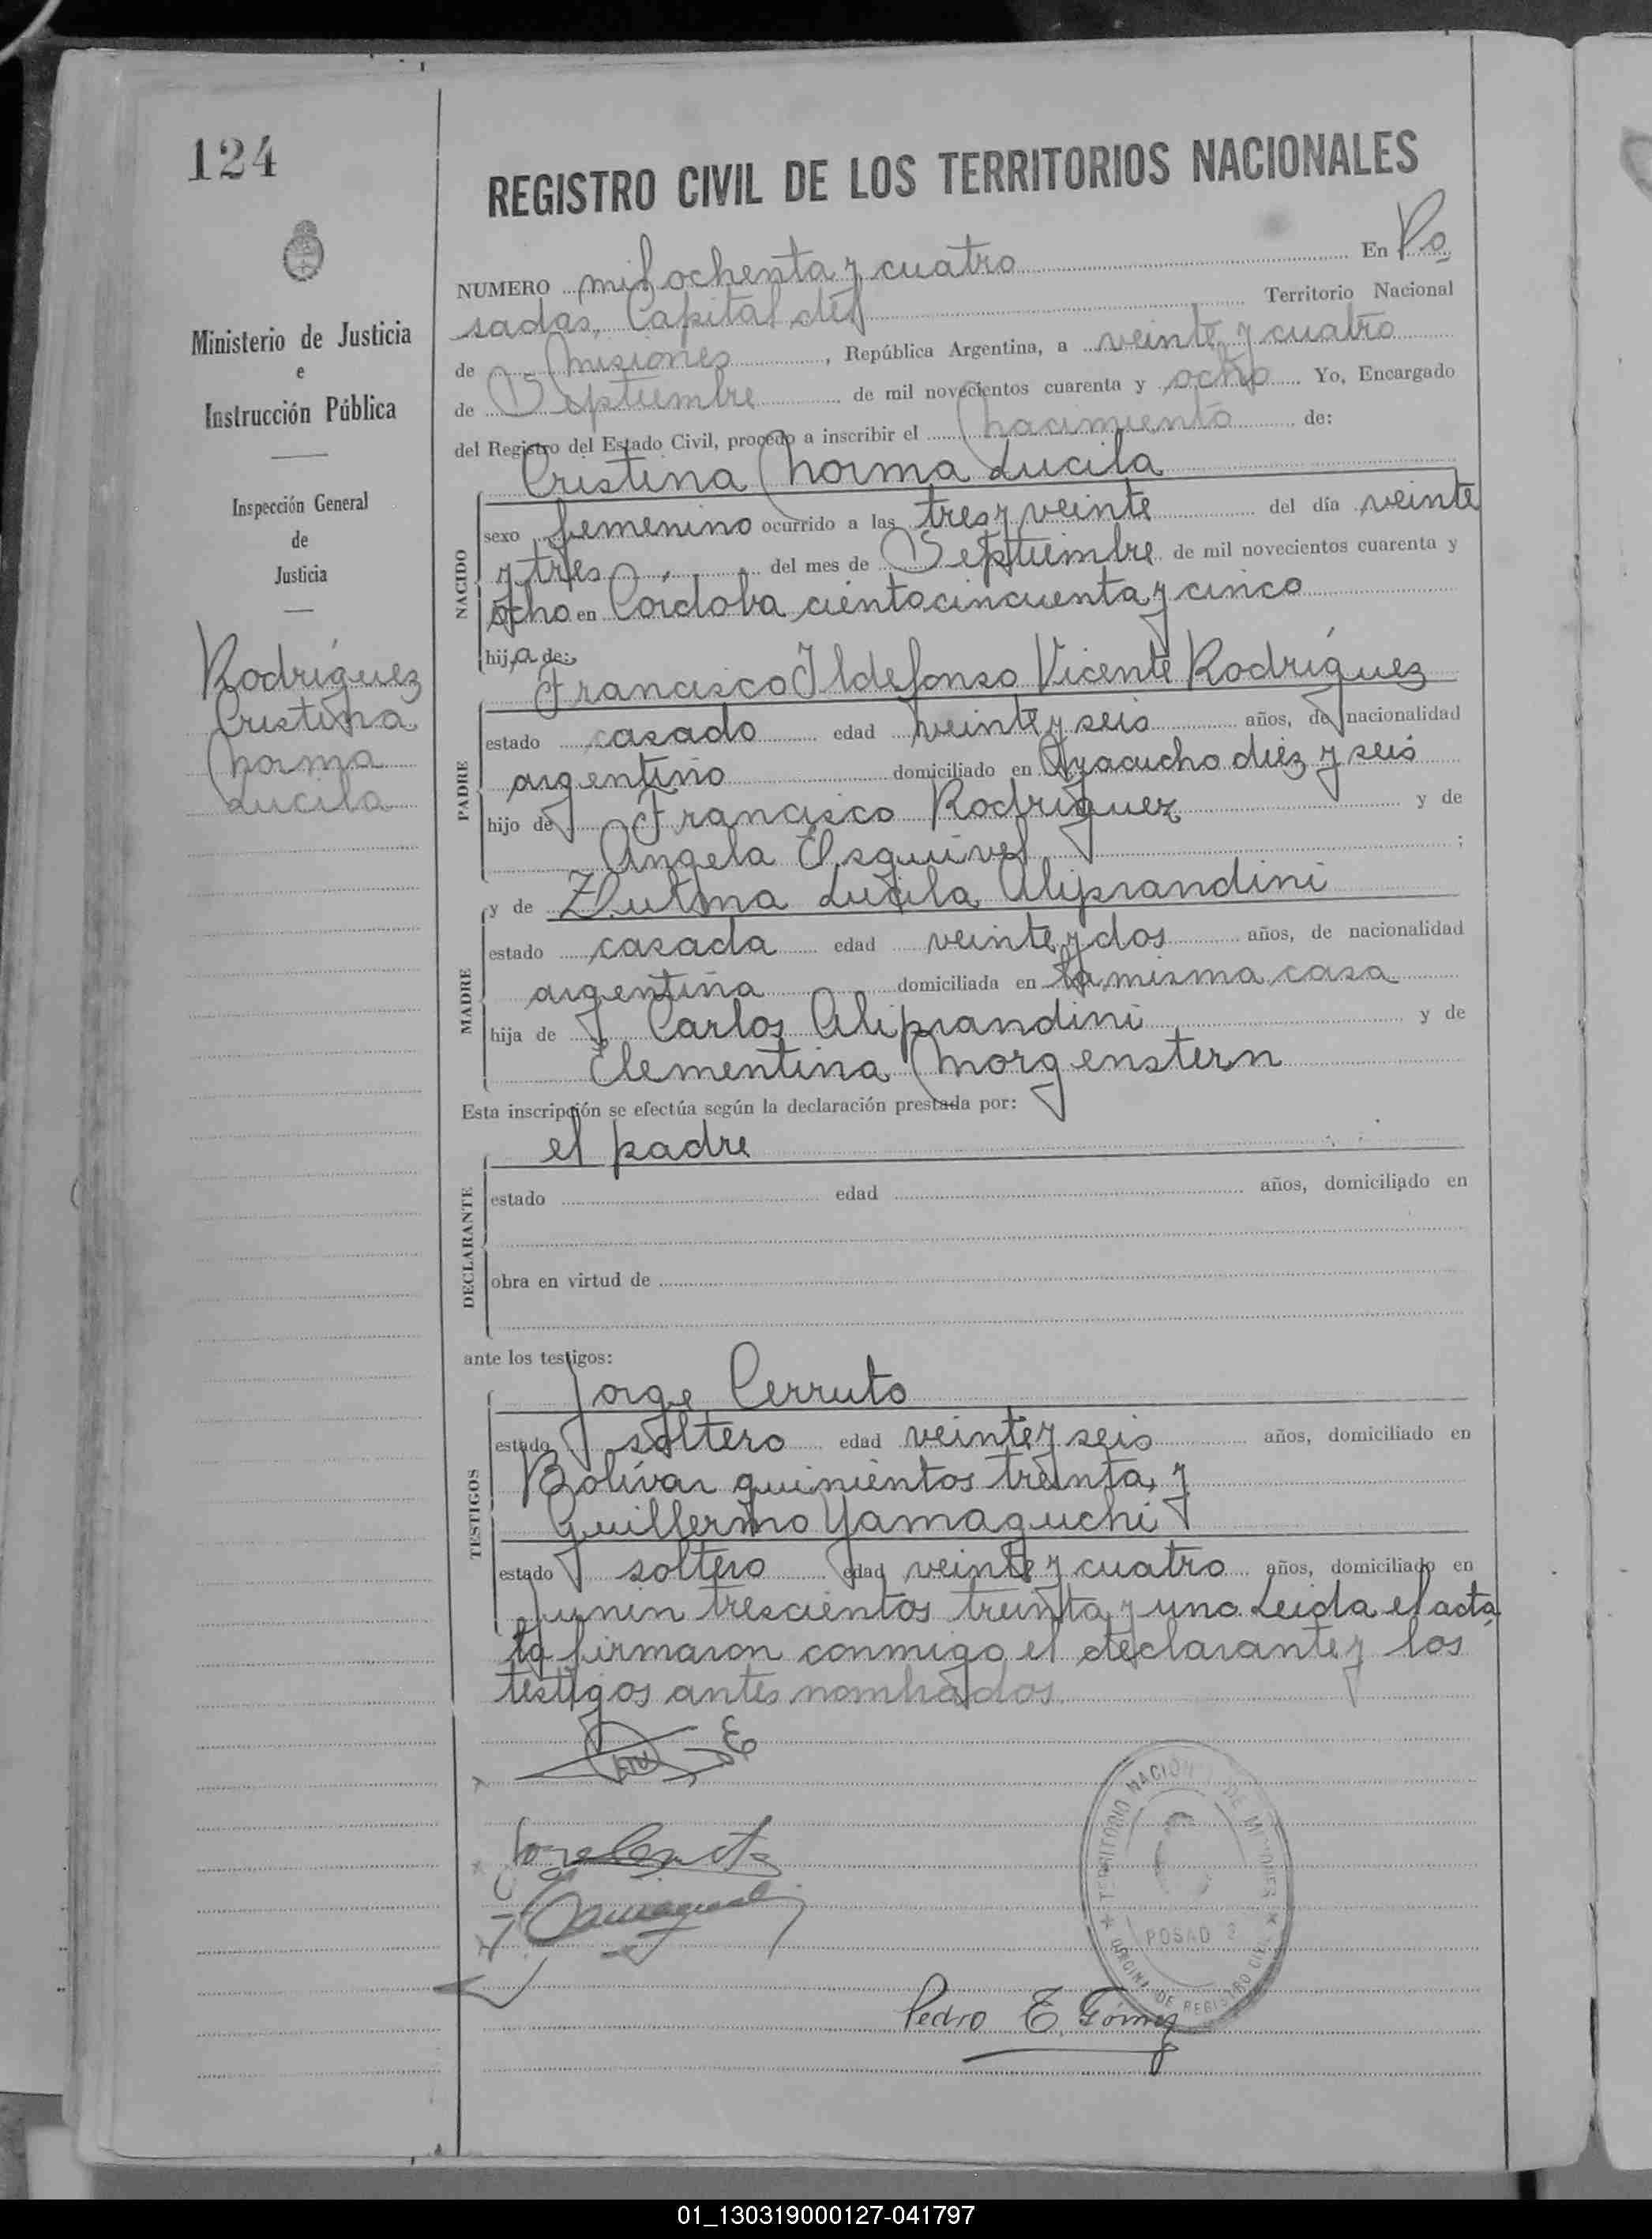 124
Ministerio de Justicia
e
Instrucción Pública
Inspección General
de
Justicia
Rodríguez
Cristina
Norma
Lucila
REGISTRO CIVIL DE LOS TERRITORIOS NACIONALES
NUMERO mil ochenta y cuatro En Po
sadas, Capital del Territorio Nacional
de Misiones, República Argentina, a veinte y cuatro
de Septiembre de mil novecientos cuarenta y ocho Yo, Encargado
del Registro del Estado Civil, procedo a inscribir el nacimiento de:
Cristina Norma Lucila
NACIDO
sexo femenino ocurrido a las tres y veinte del día veinte
y tres del mes de Septiembre de mil novecientos cuarenta y
ocho en Córdoba ciento cincuenta y cinco
hija de:
Francisco Ildefonso Vicente Rodríguez
PADRE
estado casado edad veinte y seis años, de nacionalidad
argentino domiciliado en Ayacucho diez y seis
hijo de Francisco Rodríguez y de
Angela Esquivel ;
y de Zulma Lucila Aliprandini
MADRE
estado casada edad veinte y dos años, de nacionalidad
argentina domiciliada en la misma casa
hija de Carlos Aliprandini y de
Clementina Morgenstern
Esta inscripción se efectúa según la declaración prestada por:
el padre
DECLARANTE
estado edad años, domiciliado en
obra en virtud de
ante los testigos:
Jorge Cerruto
TESTIGOS
estado soltero edad veinte y seis años, domiciliado en
Bolívar quinientos treinta y
Guillermo Yamaguchi
estado soltero edad veinte y cuatro años, domiciliado en
Junin trescientos treinta y uno Leida el acta
la firmaron conmigo el declarante y los
testigos antes nombrados
TERRITORIO NACIONAL DE MISIONES
POSADAS
OFICINA DE REGISTRO CIVIL
Pedro E. Gómez
01_130319000127-041797